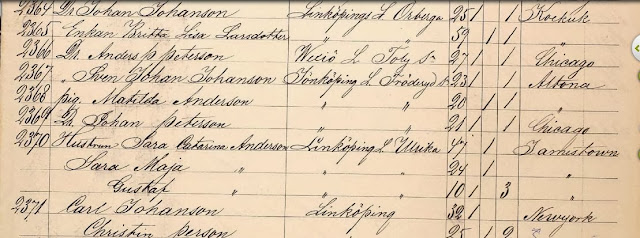 2364 Dr Johan Johanson Linköpings L Orberga 25 1 1 Keokuk
2365 Enkan Britta Lisa Larsdotter " " 59 1 1 "
2366 Dr. Anders P Peterson Wexiö L Toly Sn 27 1 1 Chicago
2367 " Sven Johan Johanson Jönköping L Fröderyd " 23 1 1 Altona
2368 pig. Matilda Anderson " " 20 1 1 "
2369 Dr Johan Peterson " " 21 1 1 Chicago
2370 Hustrun Sara Catarina Anderson Linköping L Ulrika 47 1 1 Jamistown
Sara Maja " " 24 1 "
Gustaf " " 10 1 3 "
2371 Carl Johanson Linköping 32 1 Newyork
Christin Person 25 1 9